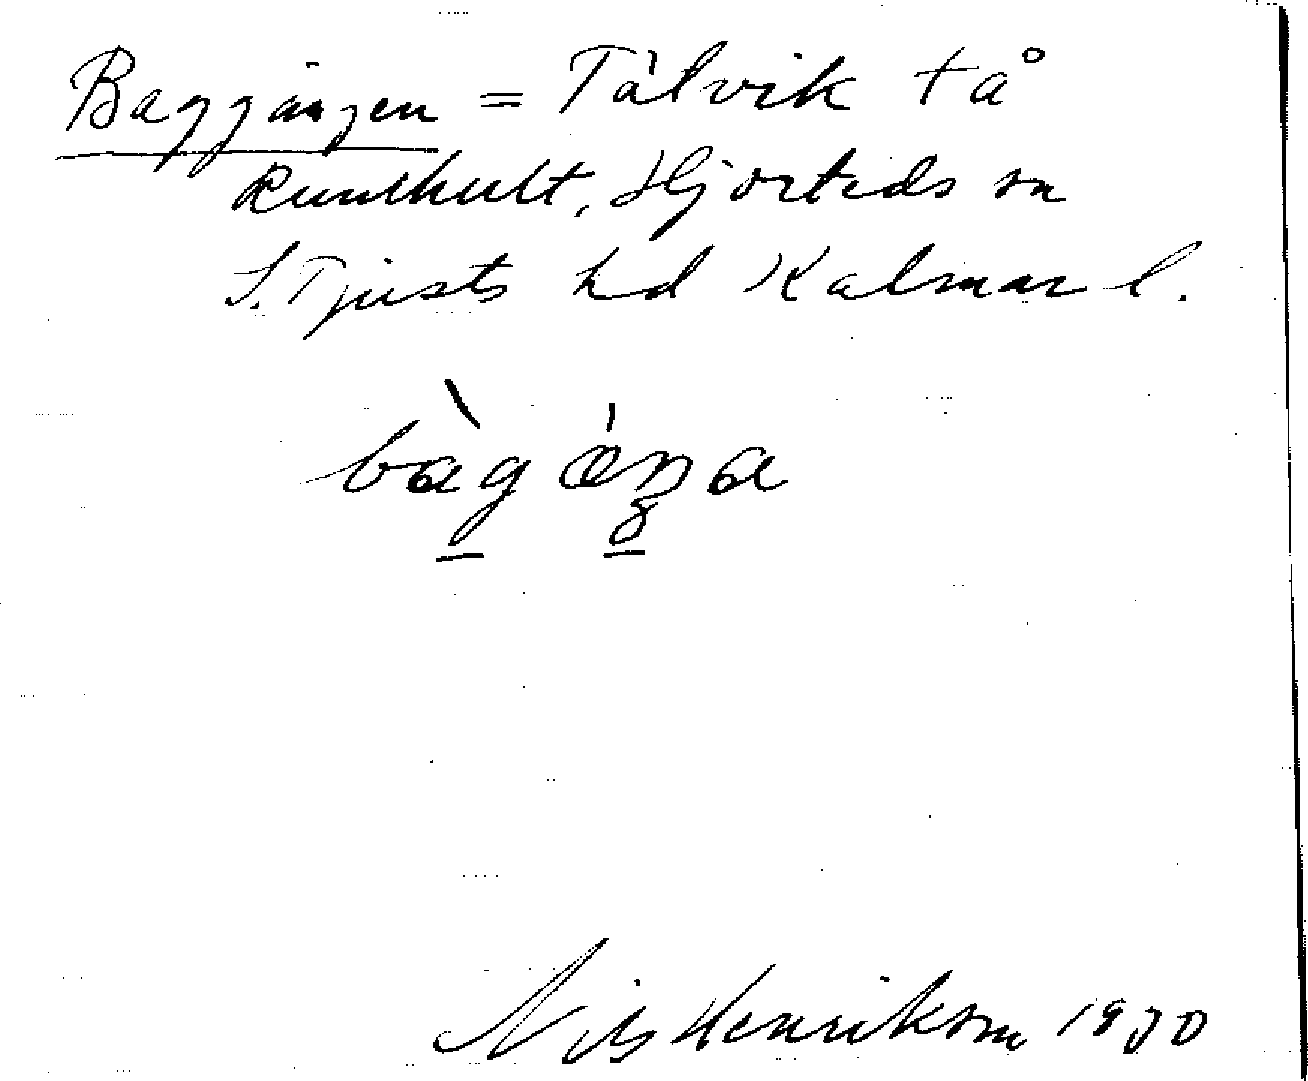 Baggängen = Tålvik tå
Runthult, Hjorteds sn
S. Tjusts hd Kalmar l.
bàgǽŋa
Nils Henrikson 1970